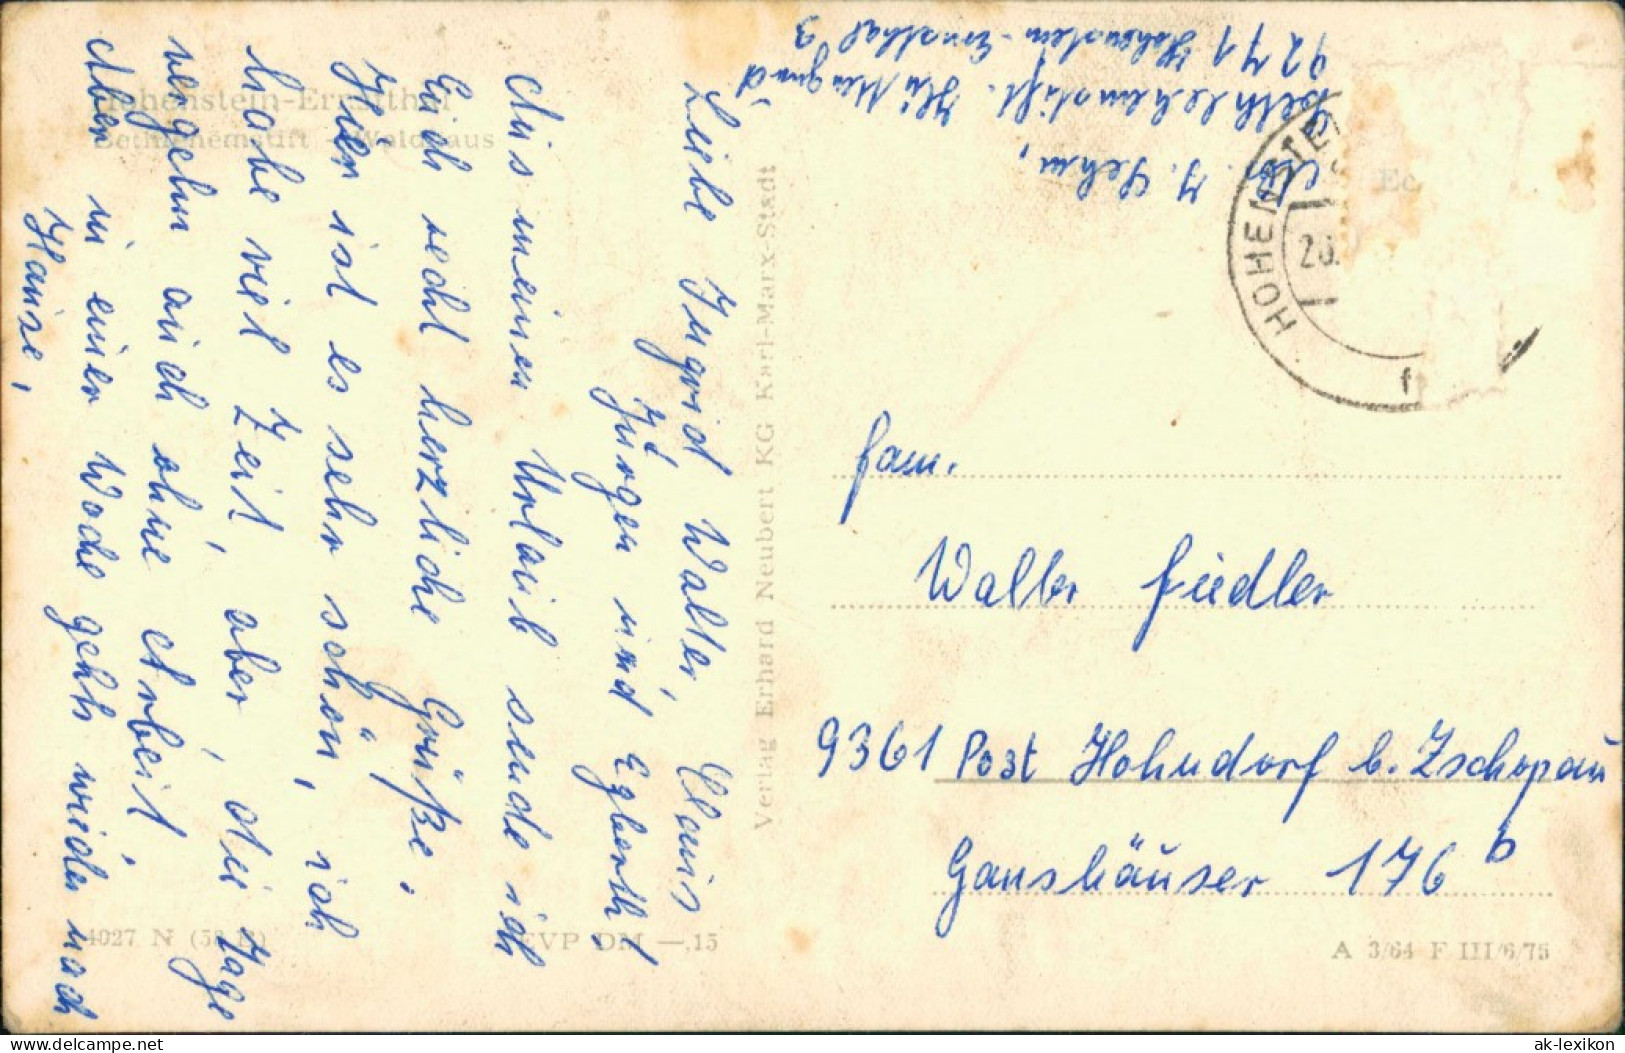 Hohenstein-Ernstthal
Bethlehemstift - Waldhaus
Liebe Ingrid Walter, Claus
Jürgen und Egberth,
Aus meinen Urlaub sende ich
Euch recht herzliche Grüße.
Hier ist es sehr schön, ich
habe viel Zeit, aber, die Tage
vergehn auch ohne Arbeit
Aber in einer Woche gehts wieder nach
Hause,
Verlag Erhard Neubert KG Karl-Marx-Stadt
Bethlehemstift.
9271 Hohenstein-Ernsthal 3
HOHENSTE
20.
f
Fam.
Walter Fiedler
9361 Post Hohndorf b. Zschopau
Ganshäuser 176 b
4027 N
EVP DM —,15
A 3/64 F III/6/75
hip-post.com
ak-lexikon